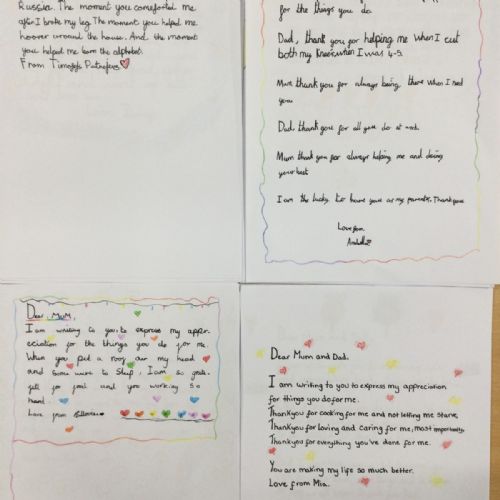 Russia. The moment you comeforted me
after I broke my leg. The moment you helped me
hoover around the house. And the moment
you helped me learn the alphabet.
From
for the things you do.
Dad, thank you for helping me when I cut
both my knees when I was 4-5.
Mum thank you for always being there when I need
you.
Dad, thank you for all you do at work.
Mum thank you for always helping me and doing
your best
I am the lucky to have you as my parents. Thank you
Love from
Dear, MUM,
I am writing to you to express my appre-
ciation for the things you do for me.
When you put a roof over my head
and some were to sleep. I am so grate-
full for food and you working so
hard.
Love from
Dear Mum and Dad,
I am writing to you to express my appreciation
for things you do for me.
Thankyou for cooking for me and not letting me starve,
Thankyou for loving and caring for me, most importantly,
Thankyou for everything you've done for me.
You are making my life so much better.
Love from Mia.